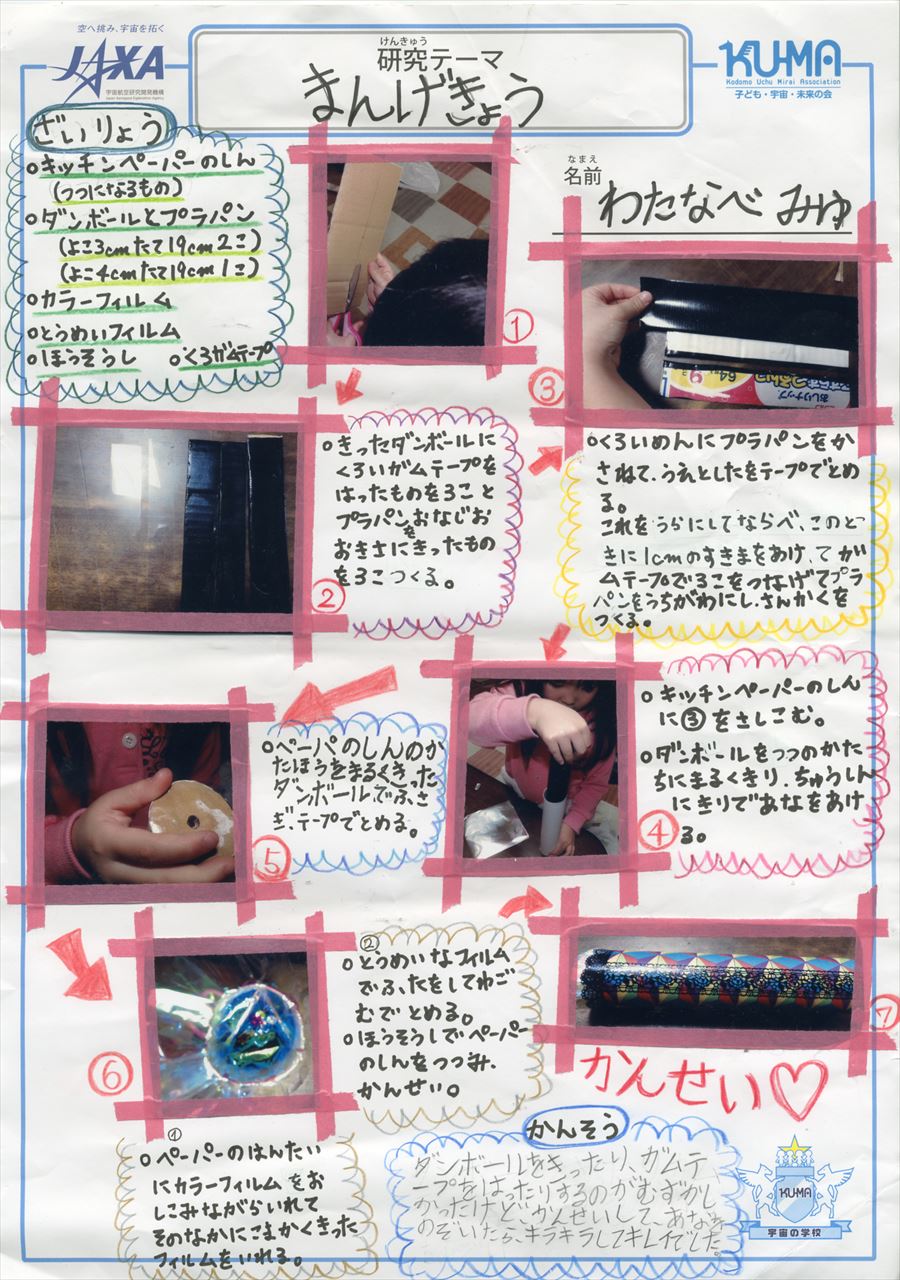 空へ挑み、宇宙を拓く
JAXA
宇宙航空研究開発機構
Japan Aerospace Exploration Agency
けんきゅう
研究テーマ
まんげきょう
KU-MA
Kodomo Uchu Mirai Association
子ども・宇宙・未来の会
なまえ
名前
わたなべ みゅ
ざいりょう
○キッチンペーパーのしん
(つつになるもの)
○ダンボールとプラバン
(よこ3cmたて19cm2こ)
(よこ4cmたて19cm1こ)
○カラーフィルム
○とうめいフィルム
○ほうそうし ○くろガムテープ
①
○きったダンボールに
くろいガムテープを
はったものを3こと
プラバンをおなじお
おきさにきったもの
を3こつくる。
②
③
○くろいめんにプラバンをか
さねて、うえとしたをテープでとめ
る。
これをうらにしてならべ、このと
きに1cmのすきまをあけ、てガ
ムテープで3こをつなげてプラ
バンをうちがわにし、さんかくを
つくる。
④
○キッチンペーパーのしん
に③をさしこむ。
○ダンボールをつつのかた
ちにまるくきり、ちゅうしん
にきりであなをあけ
る。
⑤
○ペーパのしんのか
たほうをまるくきった
ダンボールでふさ
ぎ、テープでとめる。
⑥
①
○ペーパーのはんたい
にカラーフィルムをお
しこみながらいれて
そのなかにこまかくきった
フィルムをいれる。
②
○とうめいなフィルム
でふたをしてわご
むでとめる。
○ほうそうしでペーパー
のしんをつつみ、
かんせい。
⑦
かんせい♡
かんそう
ダンボールをきったり、ガムテ
ープをはったりするのがむずかし
かったけどかんせいして、あなを
のぞいたら、キラキラしてキレイでした。
KU-MA
宇宙の学校